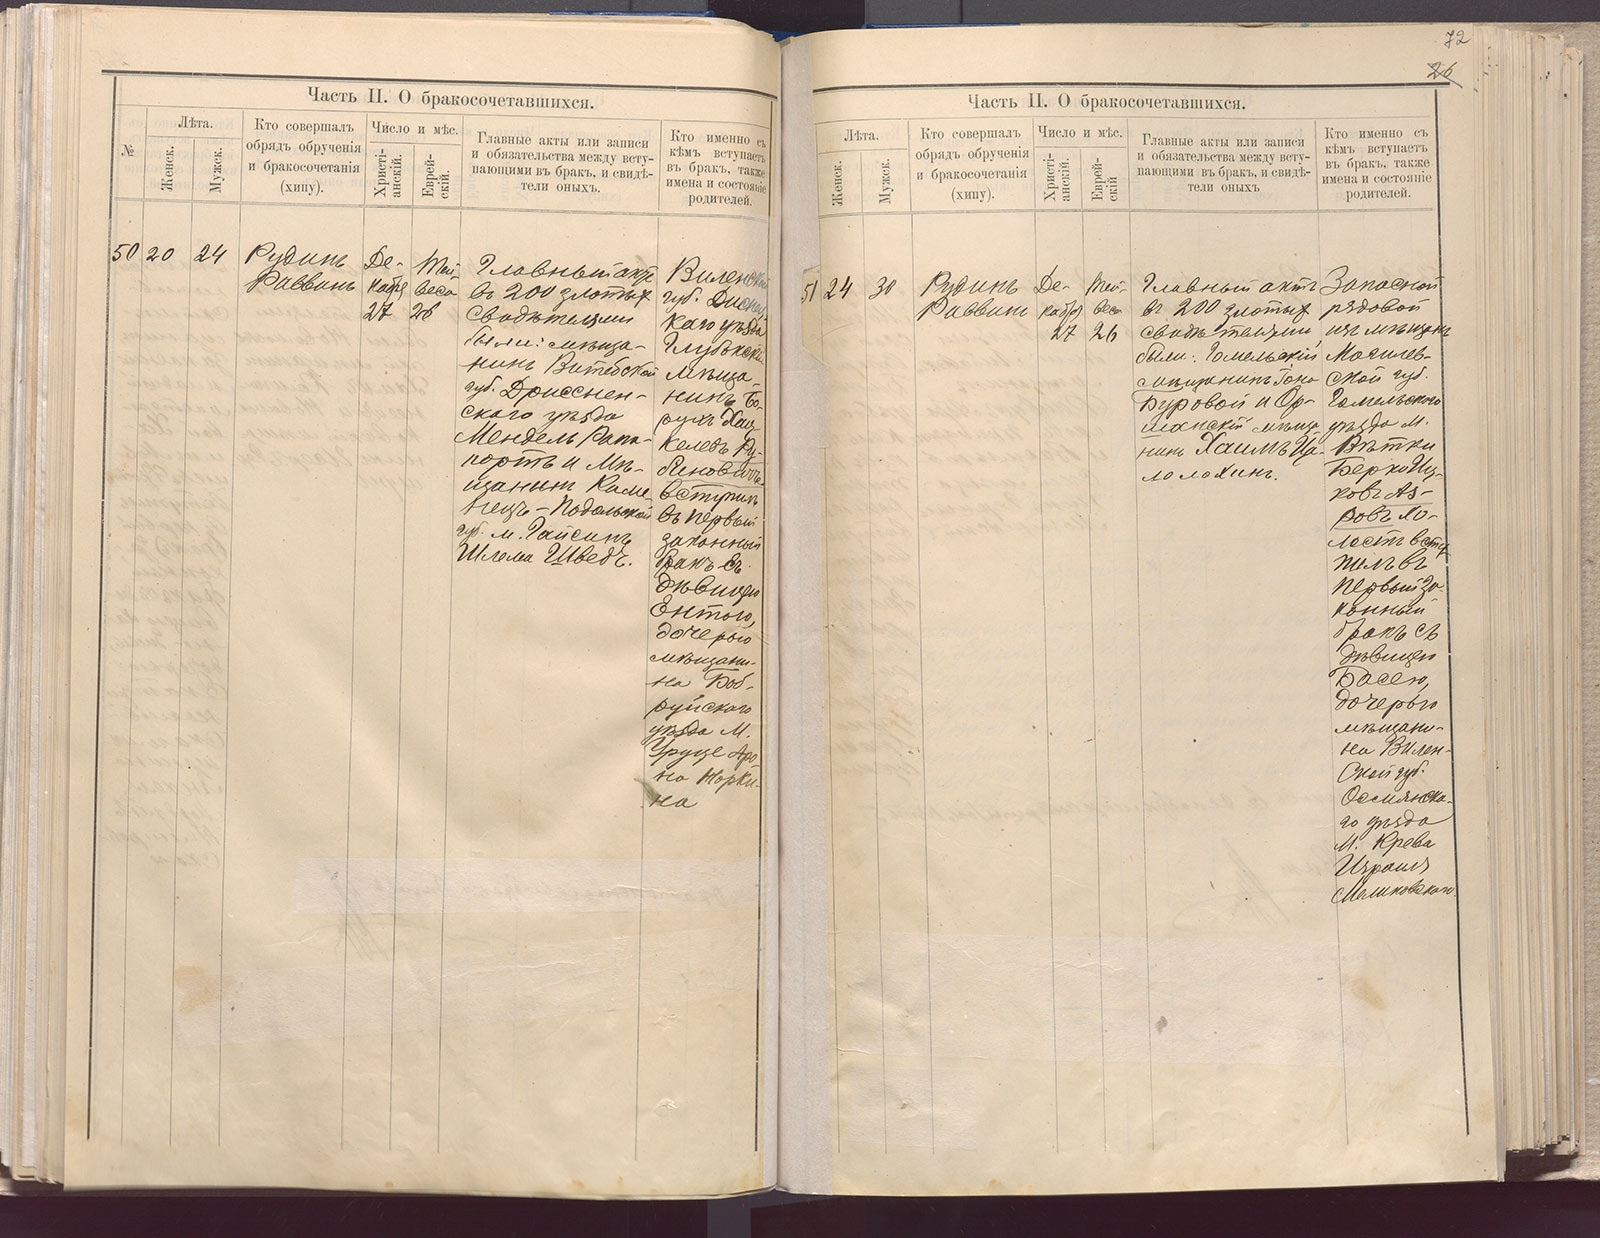 Часть II. О бракосочетавшихся.
№
Лѣта.
Женск.
Мужск.
Кто совершалъ
обрядъ обрученія
и бракосочетанія
(хипу).
Число и мѣс.
Христі-
анскій.
Еврей-
скій.
Главные акты или записи
и обязательства между всту-
пающими въ бракъ, и свидѣ-
тели оныхъ.
Кто именно съ
кѣмъ вступаетъ
въ бракъ, также
имена и состояніе
родителей.
50
20
24
Рудинъ
Раввинъ
Де-
кабря
27
Тей-
веса
26
Главный актъ
въ 200 злотыхъ
свидѣтелями
были: мѣща-
нинъ Витебской
губ. Дриссен-
скаго уѣзда
Мендель Рапа-
портъ и мѣ-
щанинъ Каме-
нецъ-Подольской
губ. м. Гайсинъ
Шлема Шведъ.
Виленской
губ. Диснен-
скаго уѣзда
Глубокскій
мѣща-
нинъ Бо-
рухъ Хац-
келевъ Ру-
биновичъ
вступилъ
въ первый
законный
бракъ съ
дѣвицею
Ентою,
дочерью
мѣщани-
на Боб-
руйскаго
уѣзда М.
Уруце Аро-
на Норки-
на
72
26
Часть II. О бракосочетавшихся.
Лѣта.
Женск.
Мужск.
Кто совершалъ
обрядъ обрученія
и бракосочетанія
(хипу).
Число и мѣс.
Христі-
анскій.
Еврей-
скій
Главные акты или записи
и обязательства между всту-
пающими въ бракъ, и свидѣ-
тели оныхъ
Кто именно съ
кѣмъ вступаетъ
въ бракъ, также
имена и состояніе
родителей.
51
24
30
Рудинъ
Раввинъ
Де-
кабря
27
Тей-
веса
26
Главный актъ
въ 200 злотыхъ
свидѣтелями
были: Гомельскій
мѣщанинъ
Буровой и Ор-
шанскій мѣща-
нинъ Хаимъ Ца-
лолохинъ.
Запасной
рядовой
изъ мѣщанъ
Могилев-
ской губ.
Гомельскаго
уѣзда М.
Вѣтки
Берко Иц-
ковъ Аз-
ровъ хо-
лостъ всту-
пилъ въ
первый за-
конный
бракъ съ
дѣвицею
Басею,
дочерью
мѣщани-
на Вилен-
ской губ.
Ошмянска-
го уѣзда
М. Крева
Израиля
Меликовскаго.